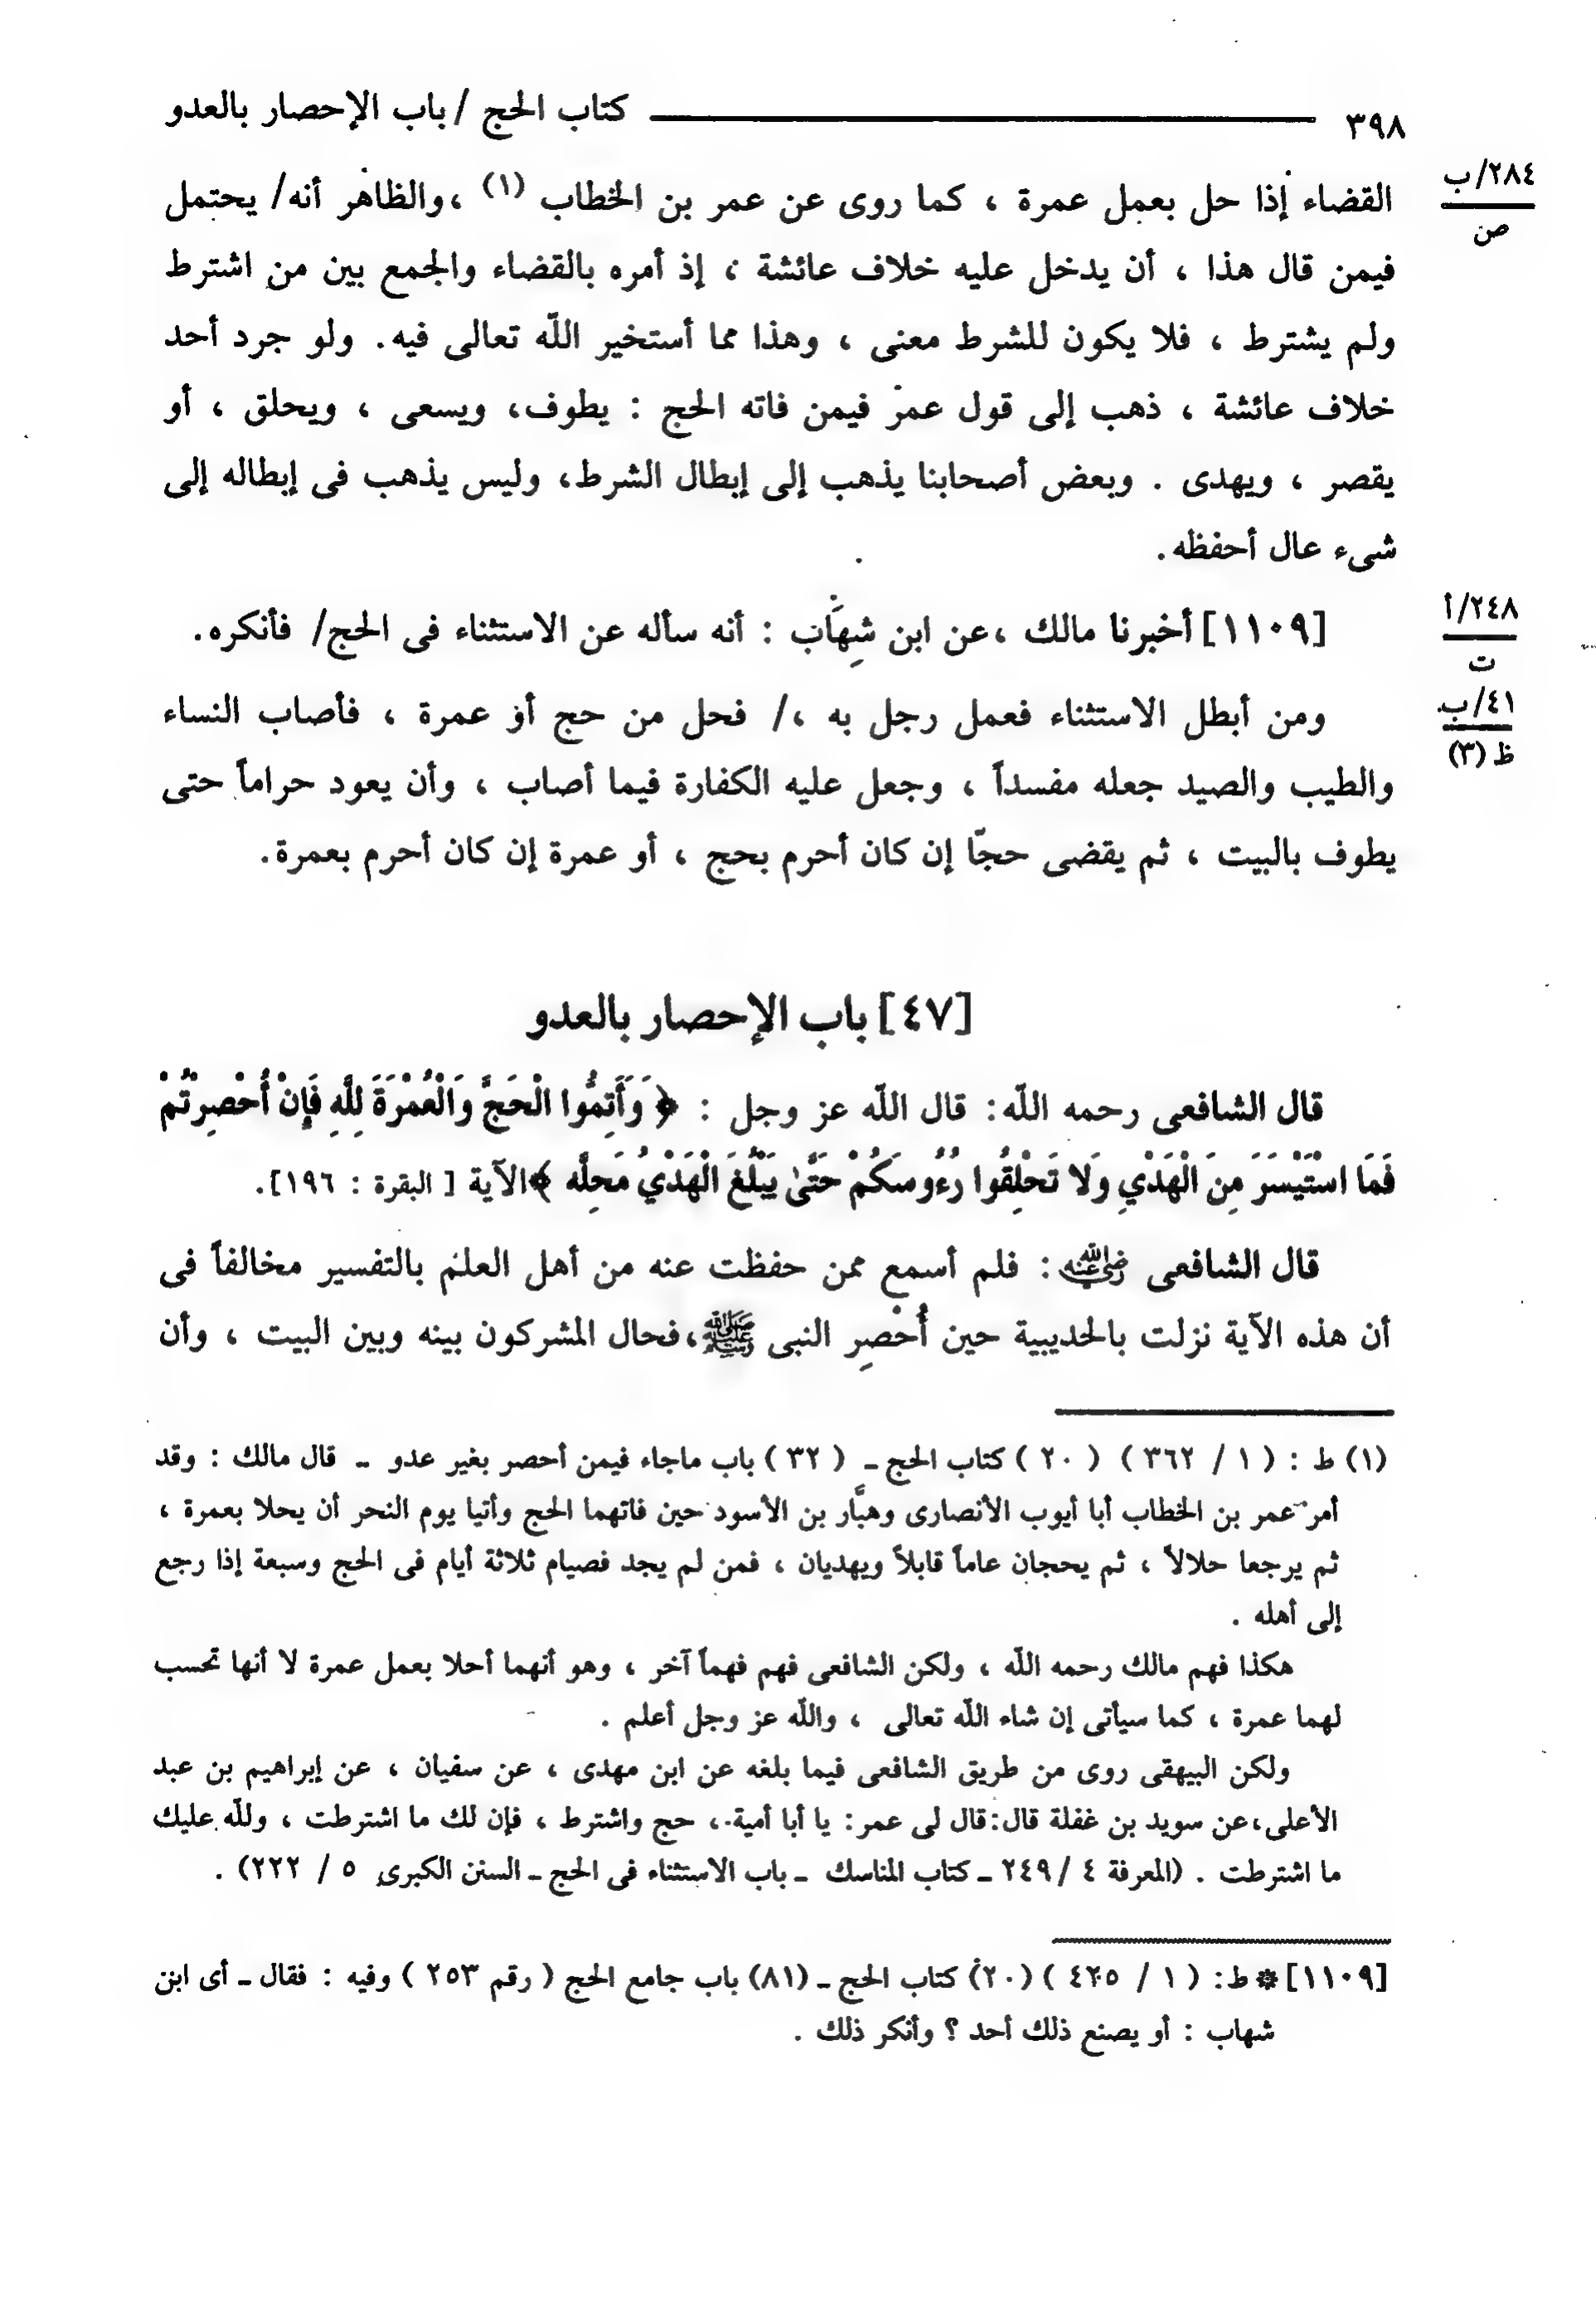 ٣٩٨ كتاب الحج / باب الإحصار بالعدو
القضاء إذا حل بعمل عمرة ، كما روى عن عمر بن الخطاب (١) ،والظاهر أنه/ يحتمل
٢٨٤/ب
ص
فيمن قال هذا ، أن يدخل عليه خلاف عائشة ، إذ أمره بالقضاء والجمع بين من اشترط
ولم يشترط ، فلا يكون للشرط معنى ، وهذا مما أستخير الله تعالى فيه. ولو جرد أحد
خلاف عائشة ، ذهب إلى قول عمر فيمن فاته الحج : يطوف، ويسعى ، ويحلق ، أو
يقصر ، ويهدى . وبعض أصحابنا يذهب إلى إبطال الشرط، وليس يذهب فى إبطاله إلى
شىء عال أحفظه.
[١١٠٩] أخبرنا مالك ،عن ابن شِهَاب : أنه سأله عن الاستثناء فى الحج/ فأنكره.
٢٤٨/أ
ت
ومن أبطل الاستثناء فعمل رجل به ،/ فحل من حج أو عمرة ، فأصاب النساء
٤١/ب
ظ (٣)
والطيب والصيد جعله مفسداً ، وجعل عليه الكفارة فيما أصاب ، وأن يعود حراماً حتى
يطوف بالبيت ، ثم يقضى حجّا إن كان أحرم بحج ، أو عمرة إن كان أحرم بعمرة.
[٤٧] باب الإحصار بالعدو
قال الشافعى رحمه الله: قال الله عز وجل : ﴿ وَأَتِمُّوا الْحَجَّ وَالْعُمْرَةَ لِلَّهِ فَإِنْ أُحْصِرْتُمْ
فَمَا اسْتَيْسَرَ مِنَ الْهَدْيِ وَلَا تَحْلِقُوا رُءُوسَكُمْ حَتَّىٰ يَبْلُغَ الْهَدْيُ مَحِلَّه ﴾الآية [ البقرة : ١٩٦].
قال الشافعى رضي الله عنه : فلم أسمع ممن حفظت عنه من أهل العلم بالتفسير مخالفاً فى
أن هذه الآية نزلت بالحديبية حين أُحْصِر النبى ﷺ،فحال المشركون بينه وبين البيت ، وأن
(١) ط : ( ١ / ٣٦٢ ) ( ٢٠ ) كتاب الحج ـ ( ٣٢ ) باب ماجاء فيمن أحصر بغير عدو ـ قال مالك : وقد
أمر عمر بن الخطاب أبا أيوب الأنصارى وهبَّار بن الأسود حين فاتهما الحج وأتيا يوم النحر أن يحلا بعمرة ،
ثم يرجعا حلالاً ، ثم يحجان عاماً قابلاً ويهديان ، فمن لم يجد فصيام ثلاثة أيام فى الحج وسبعة إذا رجع
إلى أهله .
هكذا فهم مالك رحمه الله ، ولكن الشافعى فهم فهماً آخر ، وهو أنهما أحلا بعمل عمرة لا أنها تحسب
لهما عمرة ، كما سيأتى إن شاء الله تعالى ، والله عز وجل أعلم .
ولكن البيهقى روى من طريق الشافعى فيما بلغه عن ابن مهدى ، عن سفيان ، عن إبراهيم بن عبد
الأعلى،عن سويد بن غفلة قال:قال لى عمر: يا أبا أمية ، حج واشترط ، فإن لك ما اشترطت ، ولله عليك
ما اشترطت . (المعرفة ٤ / ٢٤٩ ـ كتاب المناسك ـ باب الاستثناء فى الحج ـ السنن الكبرى ٥ / ٢٢٢) .
[١١٠٩] * ط: ( ١ / ٤٢٥ ) (٢٠) كتاب الحج ـ (٨١) باب جامع الحج ( رقم ٢٥٣ ) وفيه : فقال ـ أى ابن
شهاب : أو يصنع ذلك أحد ؟ وأنكر ذلك .